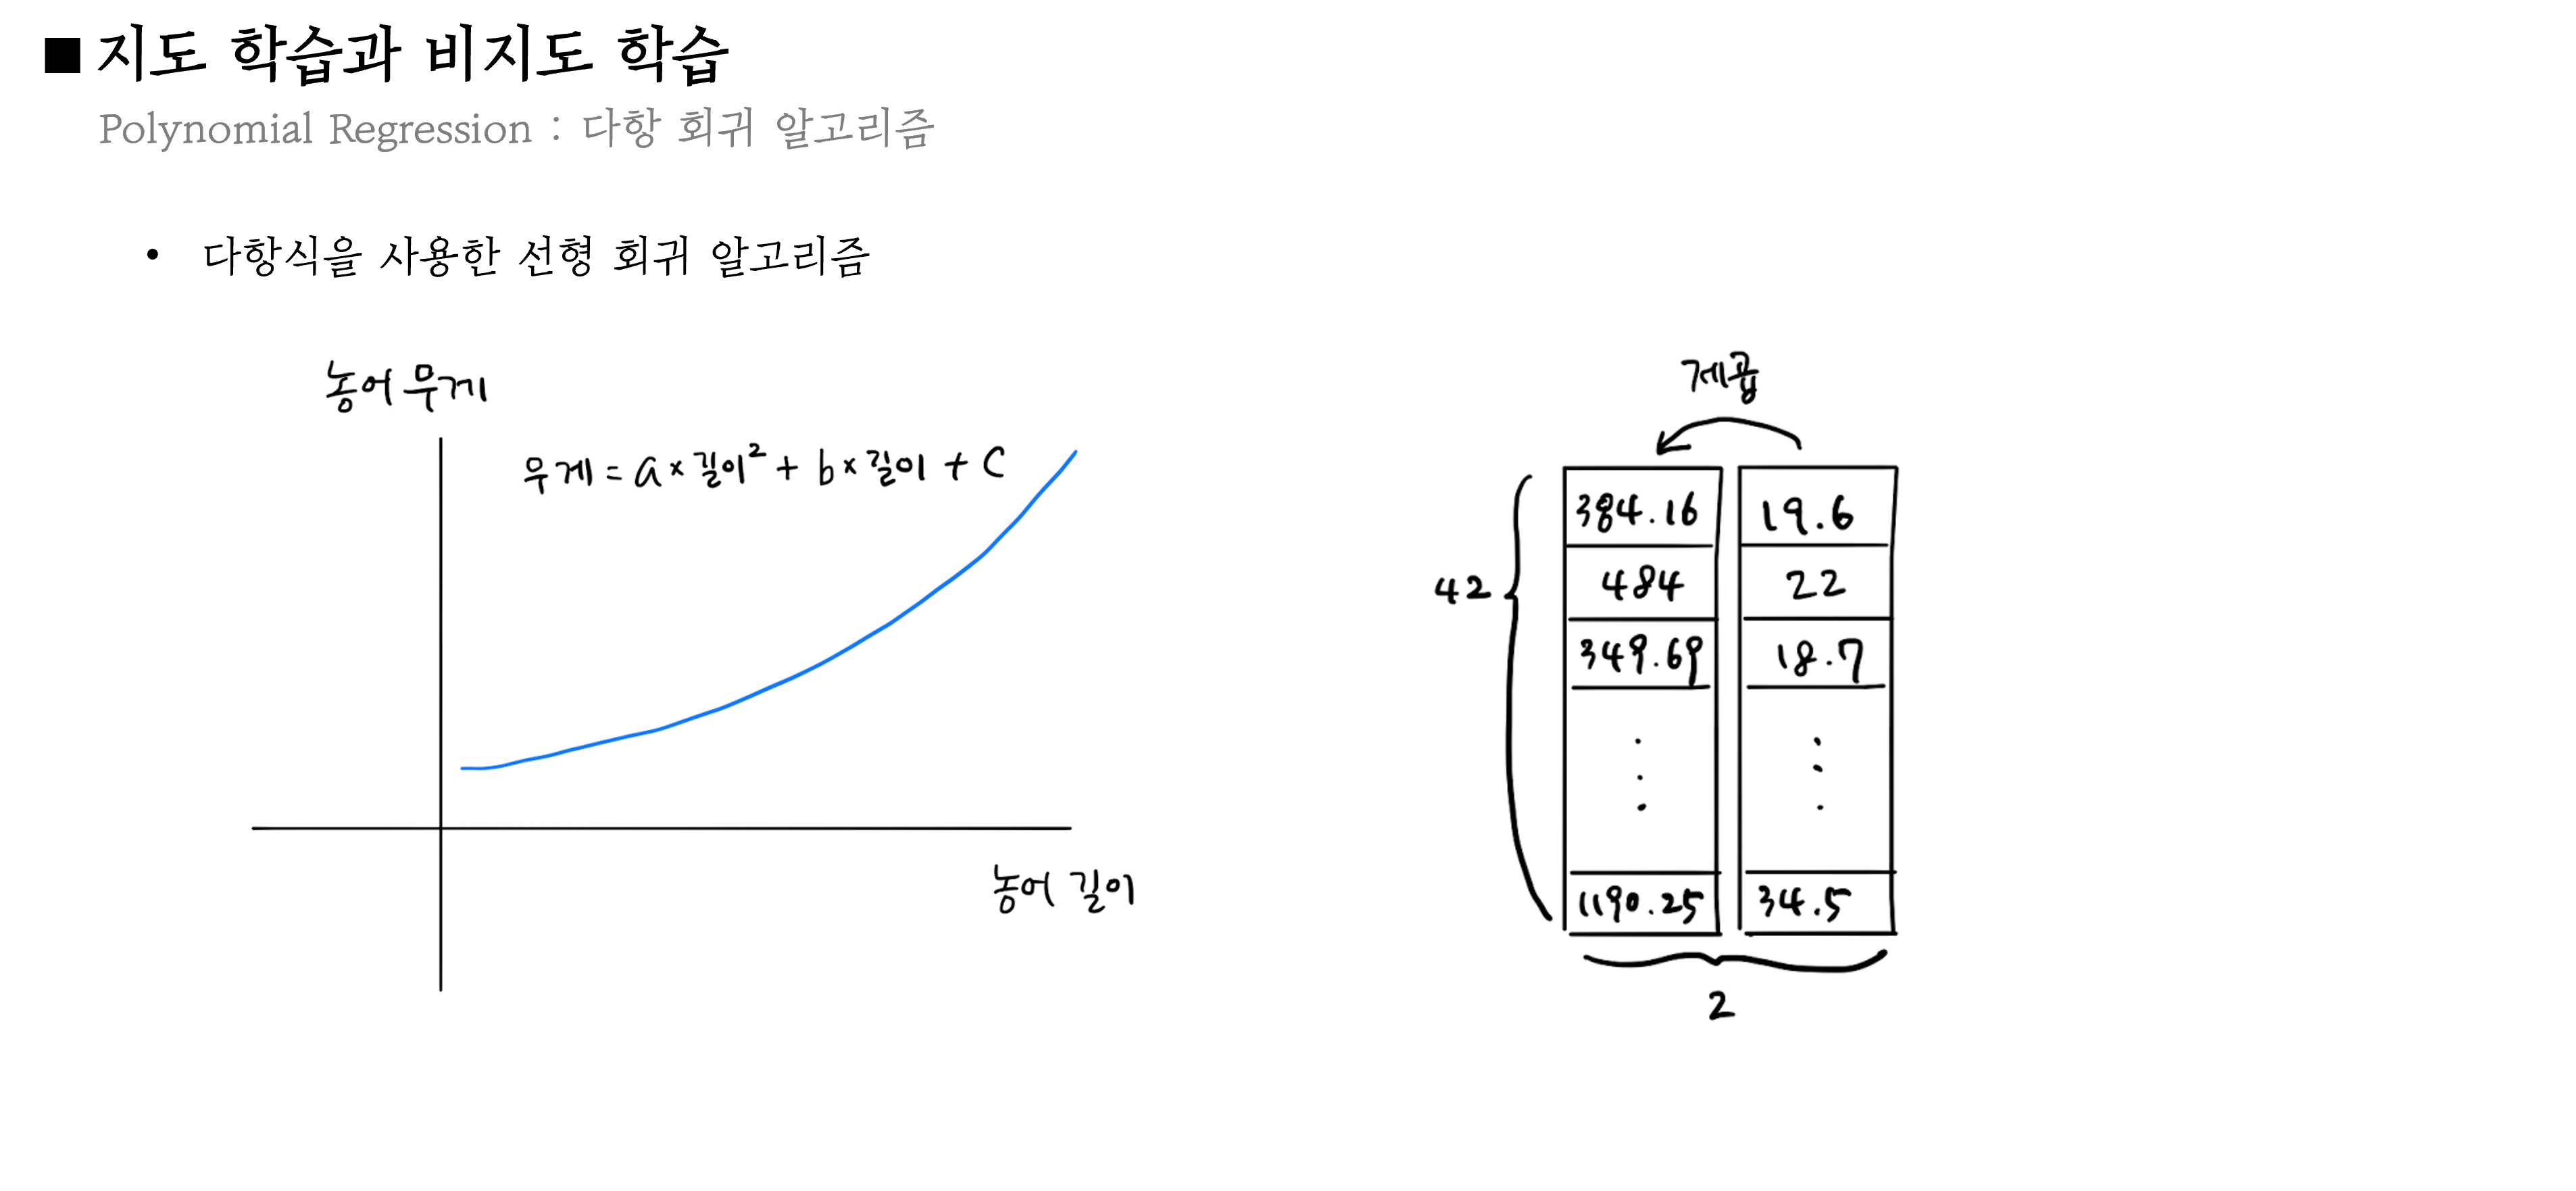 ■ 지도 학습과 비지도 학습
Polynomial Regression : 다항 회귀 알고리즘
• 다항식을 사용한 선형 회귀 알고리즘
농어 무게
무게 = a × 길이² + b × 길이 + C
농어 길이
제곱
384.16 19.6
484 22
42
349.69 18.7
1190.25 34.5
2